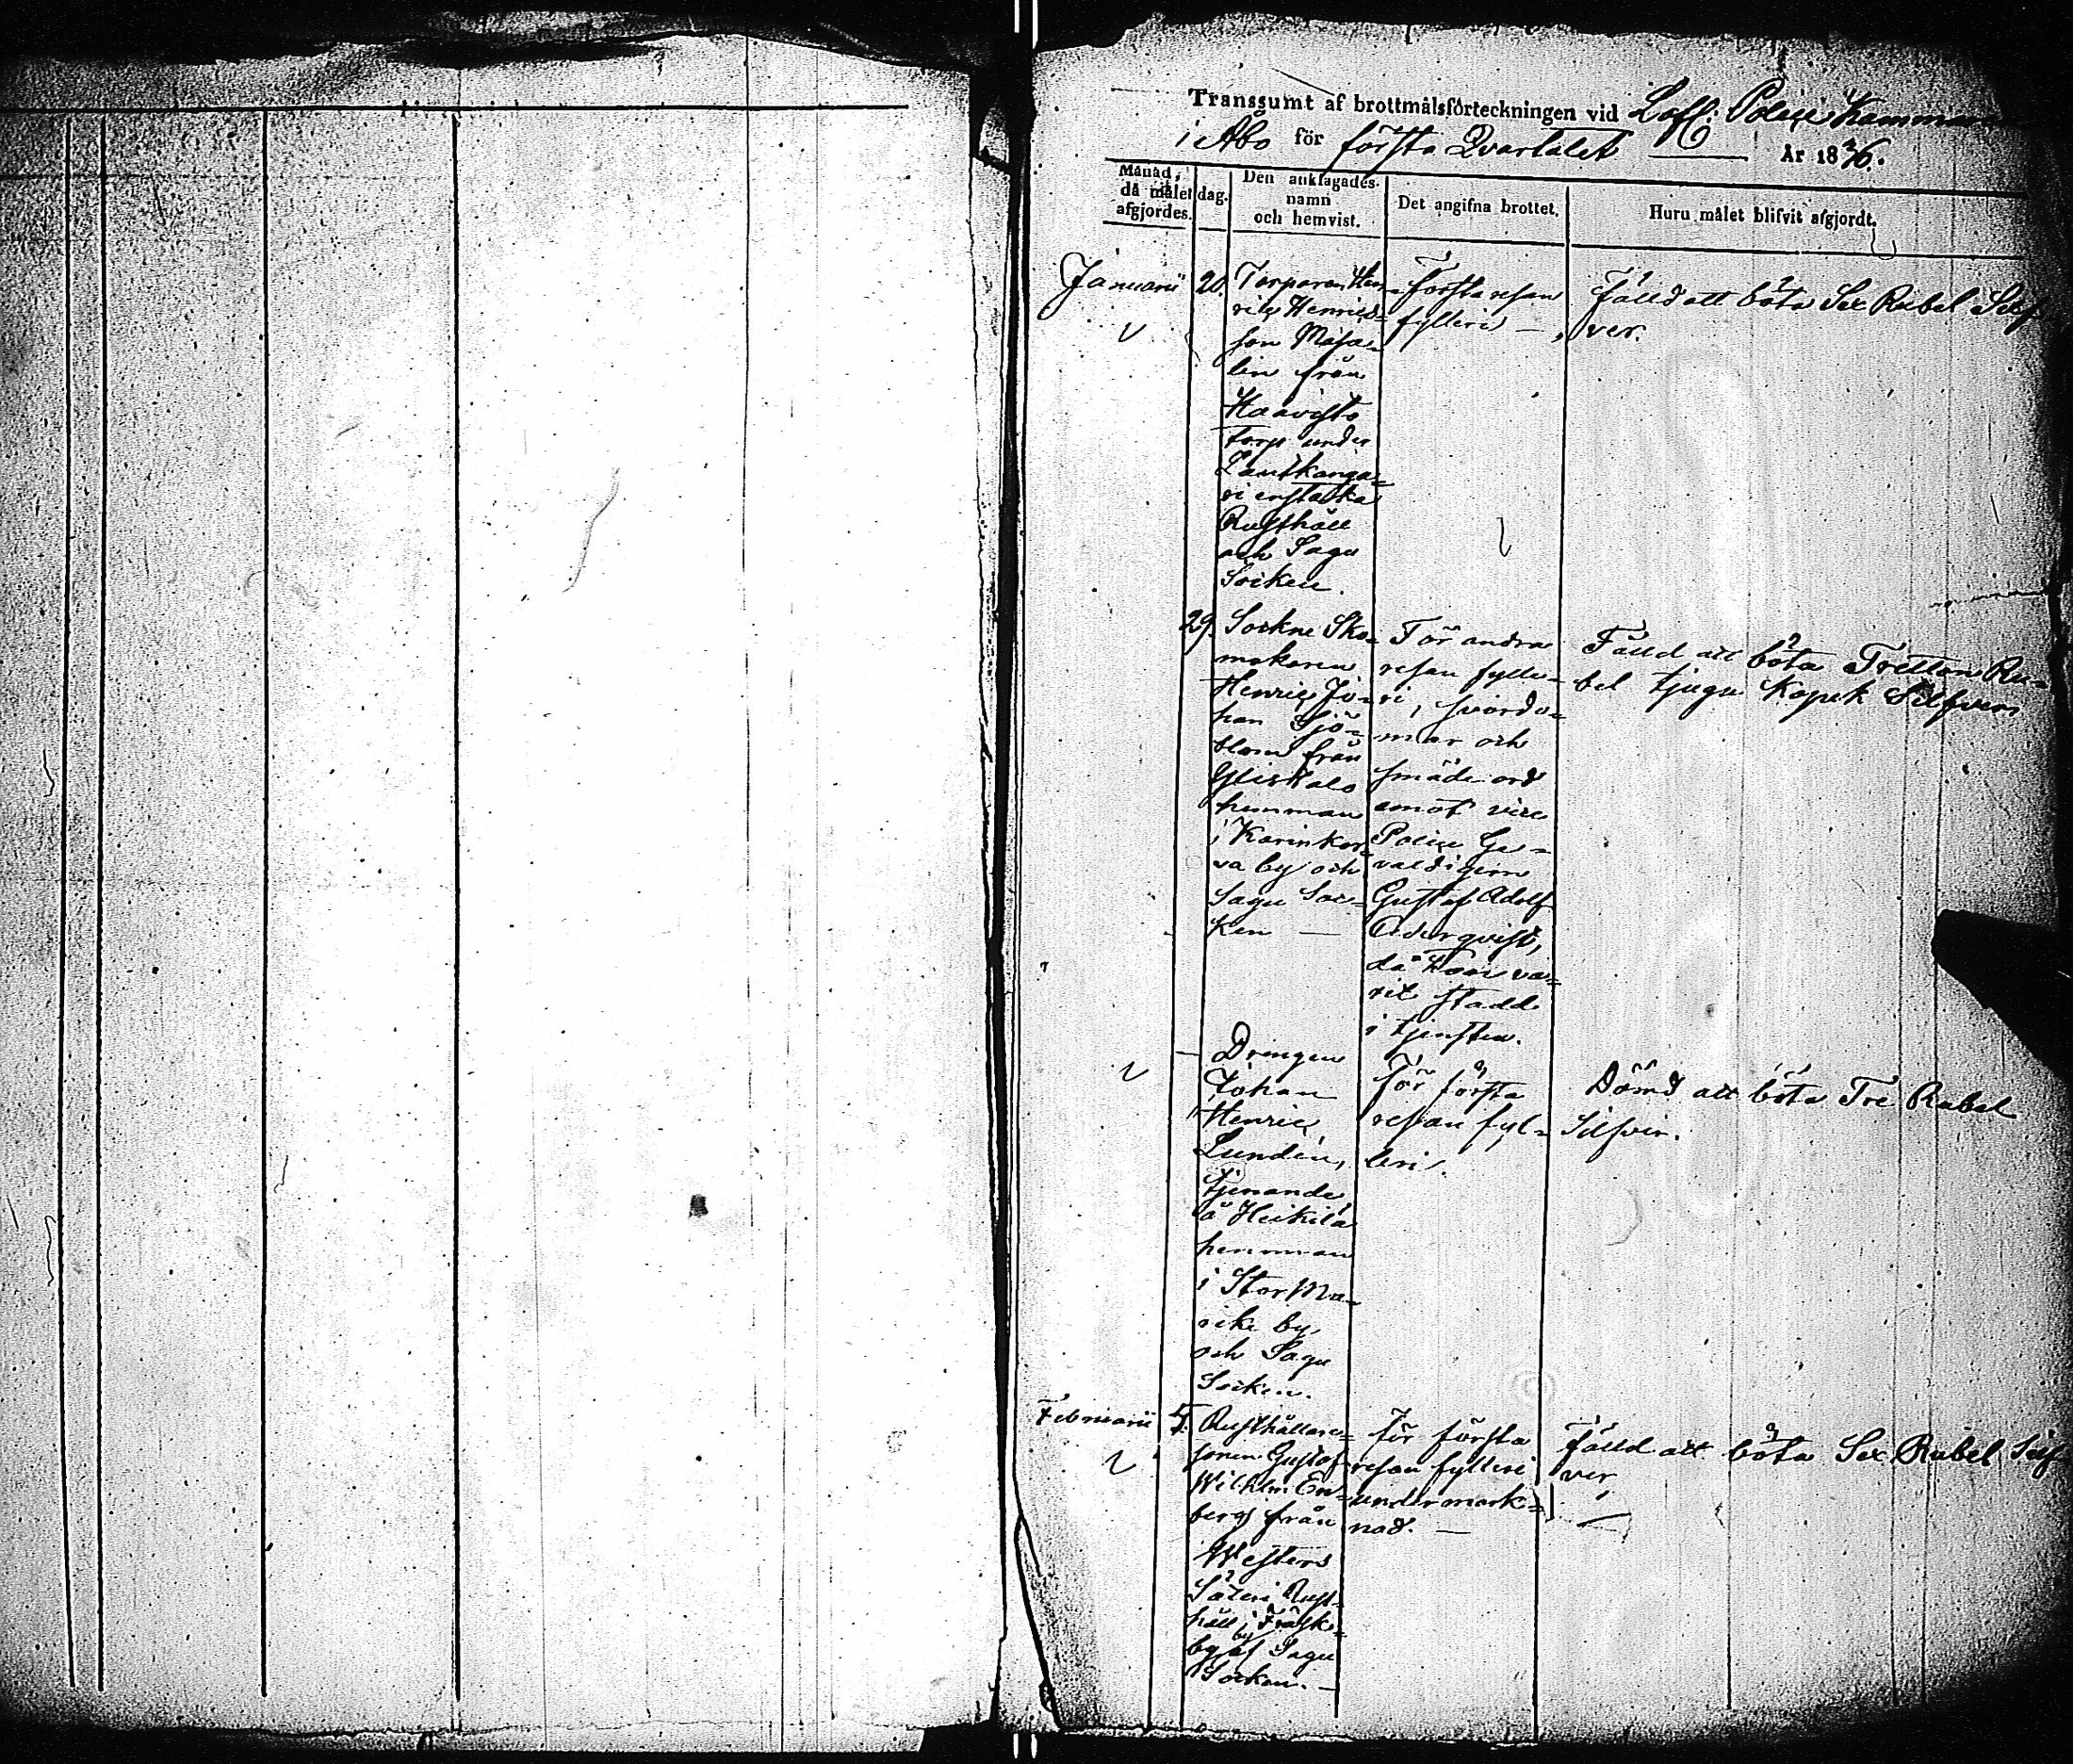 Transsumt af brottmålsförteckningen vid Lofl: Police Kammaren
i Åbo för första Qvartalet År 1876.
Månad, då målet afgjordes.
dag.
Den anklagades namn och hemvist.
Det angifna brottet.
Huru målet blifvit afgjordt.
Januarii
20.
Torparen Hen-
rik Henriks-
son
lin från
Haavisto
torp under
enstaka
Rusthåll
och Sagu
Socken.
Första resan
fylleri
Fälld att böta Sex Rubel Silf
ver.
29.
Sockne Sko-
makaren
Henric Jo-
han Sjö-
blom från
Yliskalo
hemman
i Karinkor-
va by och
Sagu Soc-
ken
För andra
resan fylle-
ri, svordo-
mar och
smäde ord
emot vice
Police Ge-
valdigern
Gustaf Adolf
Cederqvist,
då han va-
rit stadd
i tjensten.
Fälld att böta Tretton Ru-
bel tjugu Kopek Silfver
Drengen
Johan
Henric
Lundén,
tjenande
å Heikilä
hemman
i Stor Ma-
rike by,
och Sagu
Socken.
för första
resan fyl-
leri.
Dömd att böta Tre Rubel
Silfver.
Februarii
Rusthållare-
sonen Gustaf
Wilhelm En-
berg från
Westers
Säteri Rust-
håll i
by af Sagu
Socken.
för första
resan fylleri
under mark-
nad.
fälld att böta Sex Rubel Silf
ver,